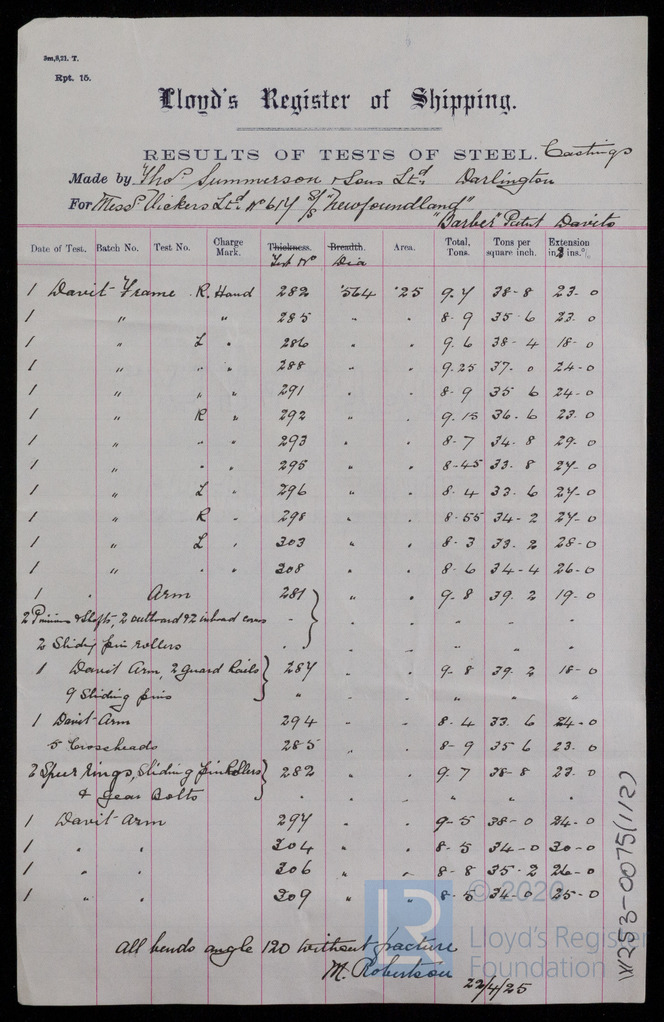 3m,8,21. T.
Rpt. 15.
Lloyd's Register of Shipping.
RESULTS OF TESTS OF STEEL. Castings
Made by Thos. Summerson & Sons Ltd. Darlington
For Messrs Vickers Ltd No 617 S/S "Newfoundland"
"Barber" Patent Davits
Date of Test. Batch No. Test No. Charge Mark. Thickness. Test No Breadth. Dia Area. Total, Tons. Tons per square inch. Extension in 3 ins. %
1 Davit Frame R. Hand 282 .564 .25 9.7 38-8 23-0
1 " " 285 " " 8-9 35-6 23-0
1 " L " 286 " " 9.6 38-4 18-0
1 " " " 288 " " 9.25 37.0 24-0
1 " " " 291 " " 8-9 35 6 24-0
1 " R " 292 " " 9.15 36.6 23.0
1 " " " 293 " " 8-7 34.8 29.0
1 " " " 295 " " 8-45 33.8 27-0
1 " L " 296 " " 8.4 33.6 27-0
1 " R " 298 " " 8.55 34-2 27-0
1 " L " 303 " " 8-3 33.2 28-0
1 " " " 308 " " 8.6 34-4 26-0
1 " Arm 281 " " 9.8 39.2 19-0
2 Pinions & Shafts, 2 outboard & 2 inboard covers " " " " " "
2 Sliding pin rollers " " " " " "
1 Davit Arm, 2 guard Rails 287 " " 9-8 39.2 18-0
9 Sliding pins " " " " " "
1 Davit Arm 294 " " 8.4 33.6 24-0
5 Crossheads 285 " " 8-9 35 6 23.0
2 Spur rings, Sliding pin Rollers 282 " " 9.7 38-8 23.0
& gear Bolts " " " " " "
1 Davit Arm 297 " " 9-5 38-0 24-0
1 " " 304 " " 8-5 34-0 30-0
1 " " 306 " " 8-8 35.2 26-0
1 " " 309 " " 8-5 34-0 25-0
all bends angle 120 without fracture
M. Robertson
22/4/25
W253-0075(1/2)
LR
© 2020
Lloyd's Register
Foundation